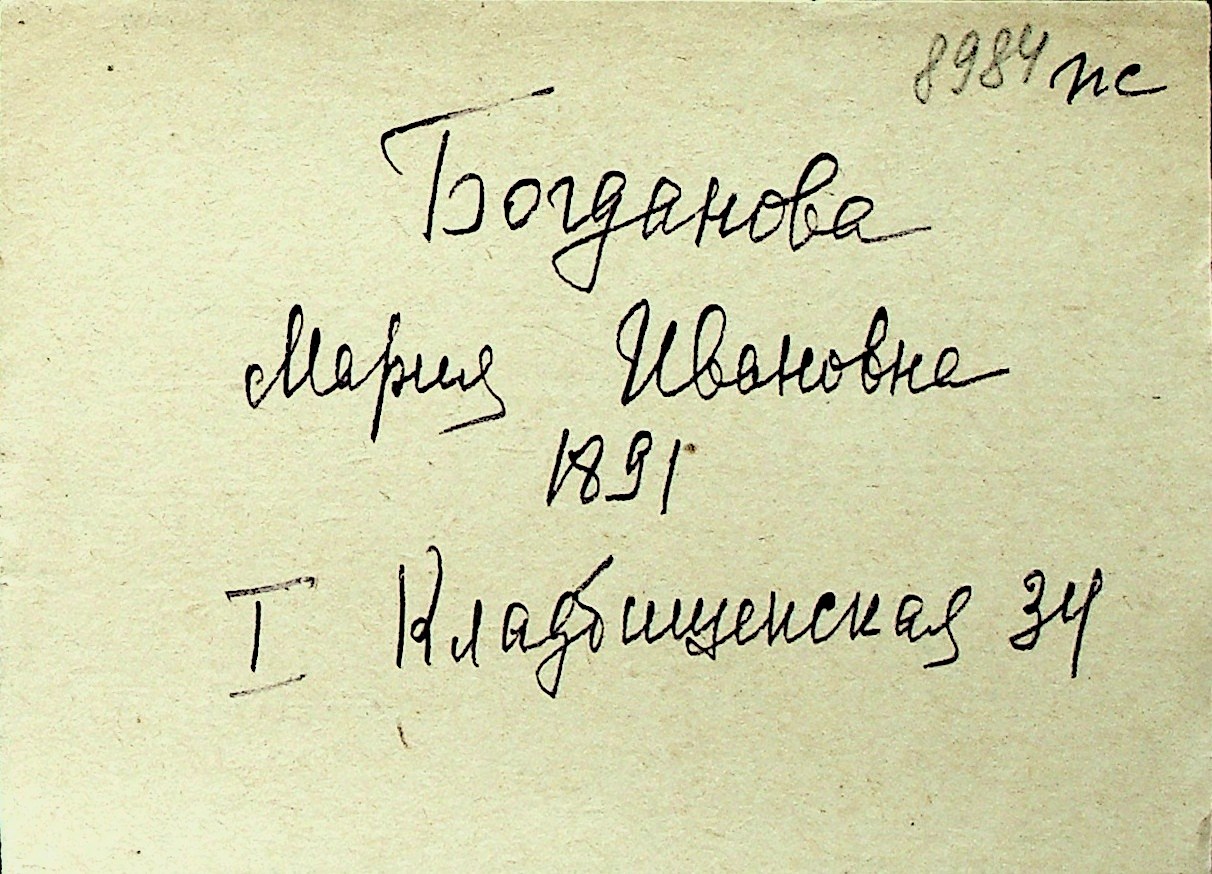 8984 пс
Богданова
Мария Ивановна
1891
I Кладбищенская 34